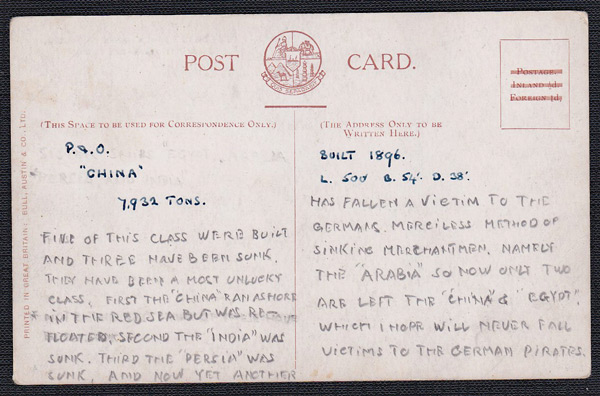 POST CARD.
POSTAGE.
INLAND ½d.
FOREIGN 1d.
(THIS SPACE TO BE USED FOR CORRESPONDENCE ONLY.)
P. & O.
"CHINA"
7,932 TONS.
FIVE OF THIS CLASS WERE BUILT
AND THREE HAVE BEEN SUNK.
THEY HAVE BEEN A MOST UNLUCKY
CLASS, FIRST THE "CHINA" RAN ASHORE
IN THE RED SEA BUT WAS RE-
FLOATED, SECOND THE "INDIA" WAS
SUNK. THIRD THE "PERSIA" WAS
SUNK, AND NOW YET ANOTHER
(THE ADDRESS ONLY TO BE
WRITTEN HERE.)
BUILT 1896.
L. 500' B. 54'. D. 38'.
HAS FALLEN A VICTIM TO THE
GERMANS. MERCILESS METHOD OF
SINKING MERCHANTMEN, NAMELY
THE "ARABIA" SO NOW ONLY TWO
ARE LEFT THE "CHINA" & "EGYPT",
WHICH I HOPE WILL NEVER FALL
VICTIMS TO THE GERMAN PIRATES.
PRINTED IN GREAT BRITAIN. BULL, AUSTIN & CO., LTD.